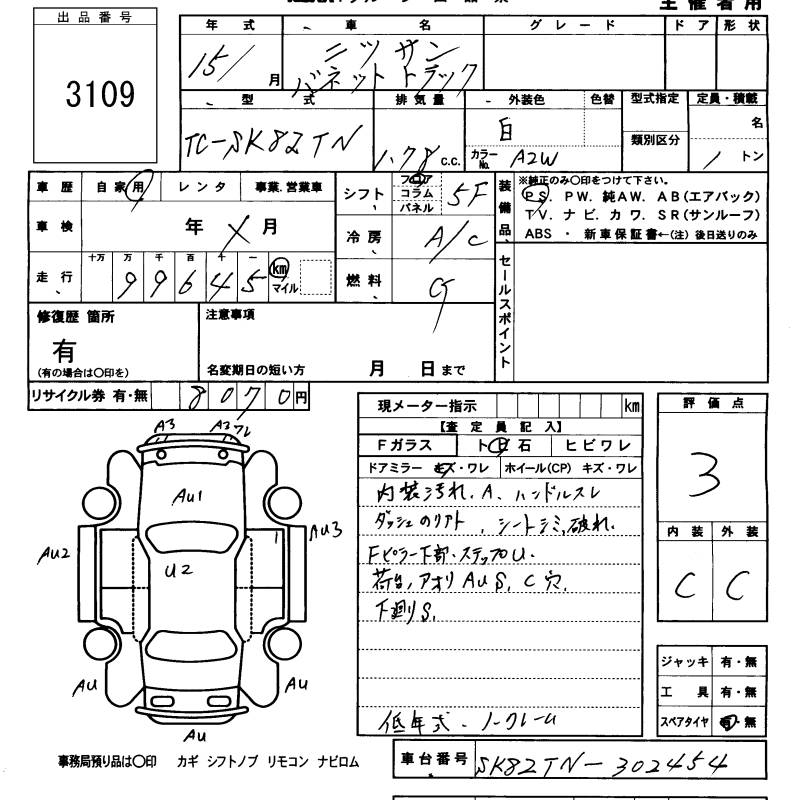 主催者用
出品番号
3109
年式 車名 グレード ドア 形状
15/ 月 ニッサン
バネットトラック
型式 排気量 外装色 色替 型式指定 定員・積載
TC-SK82TN 1.78 c.c. 白 類別区分 名
カラーNo. A2W 1 トン
車歴 自家用 レンタ 事業.営業車
車検 年 月
走行 十万 万 千 百 十 一
99645 km マイル
シフト フロア コラム パネル 5F
冷房 A/C
燃料 G
装備品
※純正のみ〇印をつけて下さい。
PS. PW. 純AW. AB(エアバック)
TV. ナビ. カワ. SR(サンルーフ)
ABS ・ 新車保証書←(注)後日送りのみ
セールスポイント
修復歴 箇所
有
(有の場合は〇印を)
注意事項
名変期日の短い方 月 日まで
リサイクル券 有・無 8070円
現メーター指示 km
【査定員記入】
Fガラス ト目石 ヒビワレ
ドアミラー キズ・ワレ ホイール(CP) キズ・ワレ
内装汚れ、A、ハンドルスレ
ダッシュのリアト、シートシミ、破れ.
Fピラー下部・ステップU.
荷台,アオリ AU S, C穴.
下廻りS.
低年式. ノークレーム
評価点
3
内装 外装
C C
ジャッキ 有・無
工具 有・無
スペアタイヤ 有・無
A3 A2 ワレ
AU1
AU3
AU2
U2
AU AU
AU
事務局預り品は〇印 カギ シフトノブ リモコン ナビロム
車台番号 SK82TN-302454